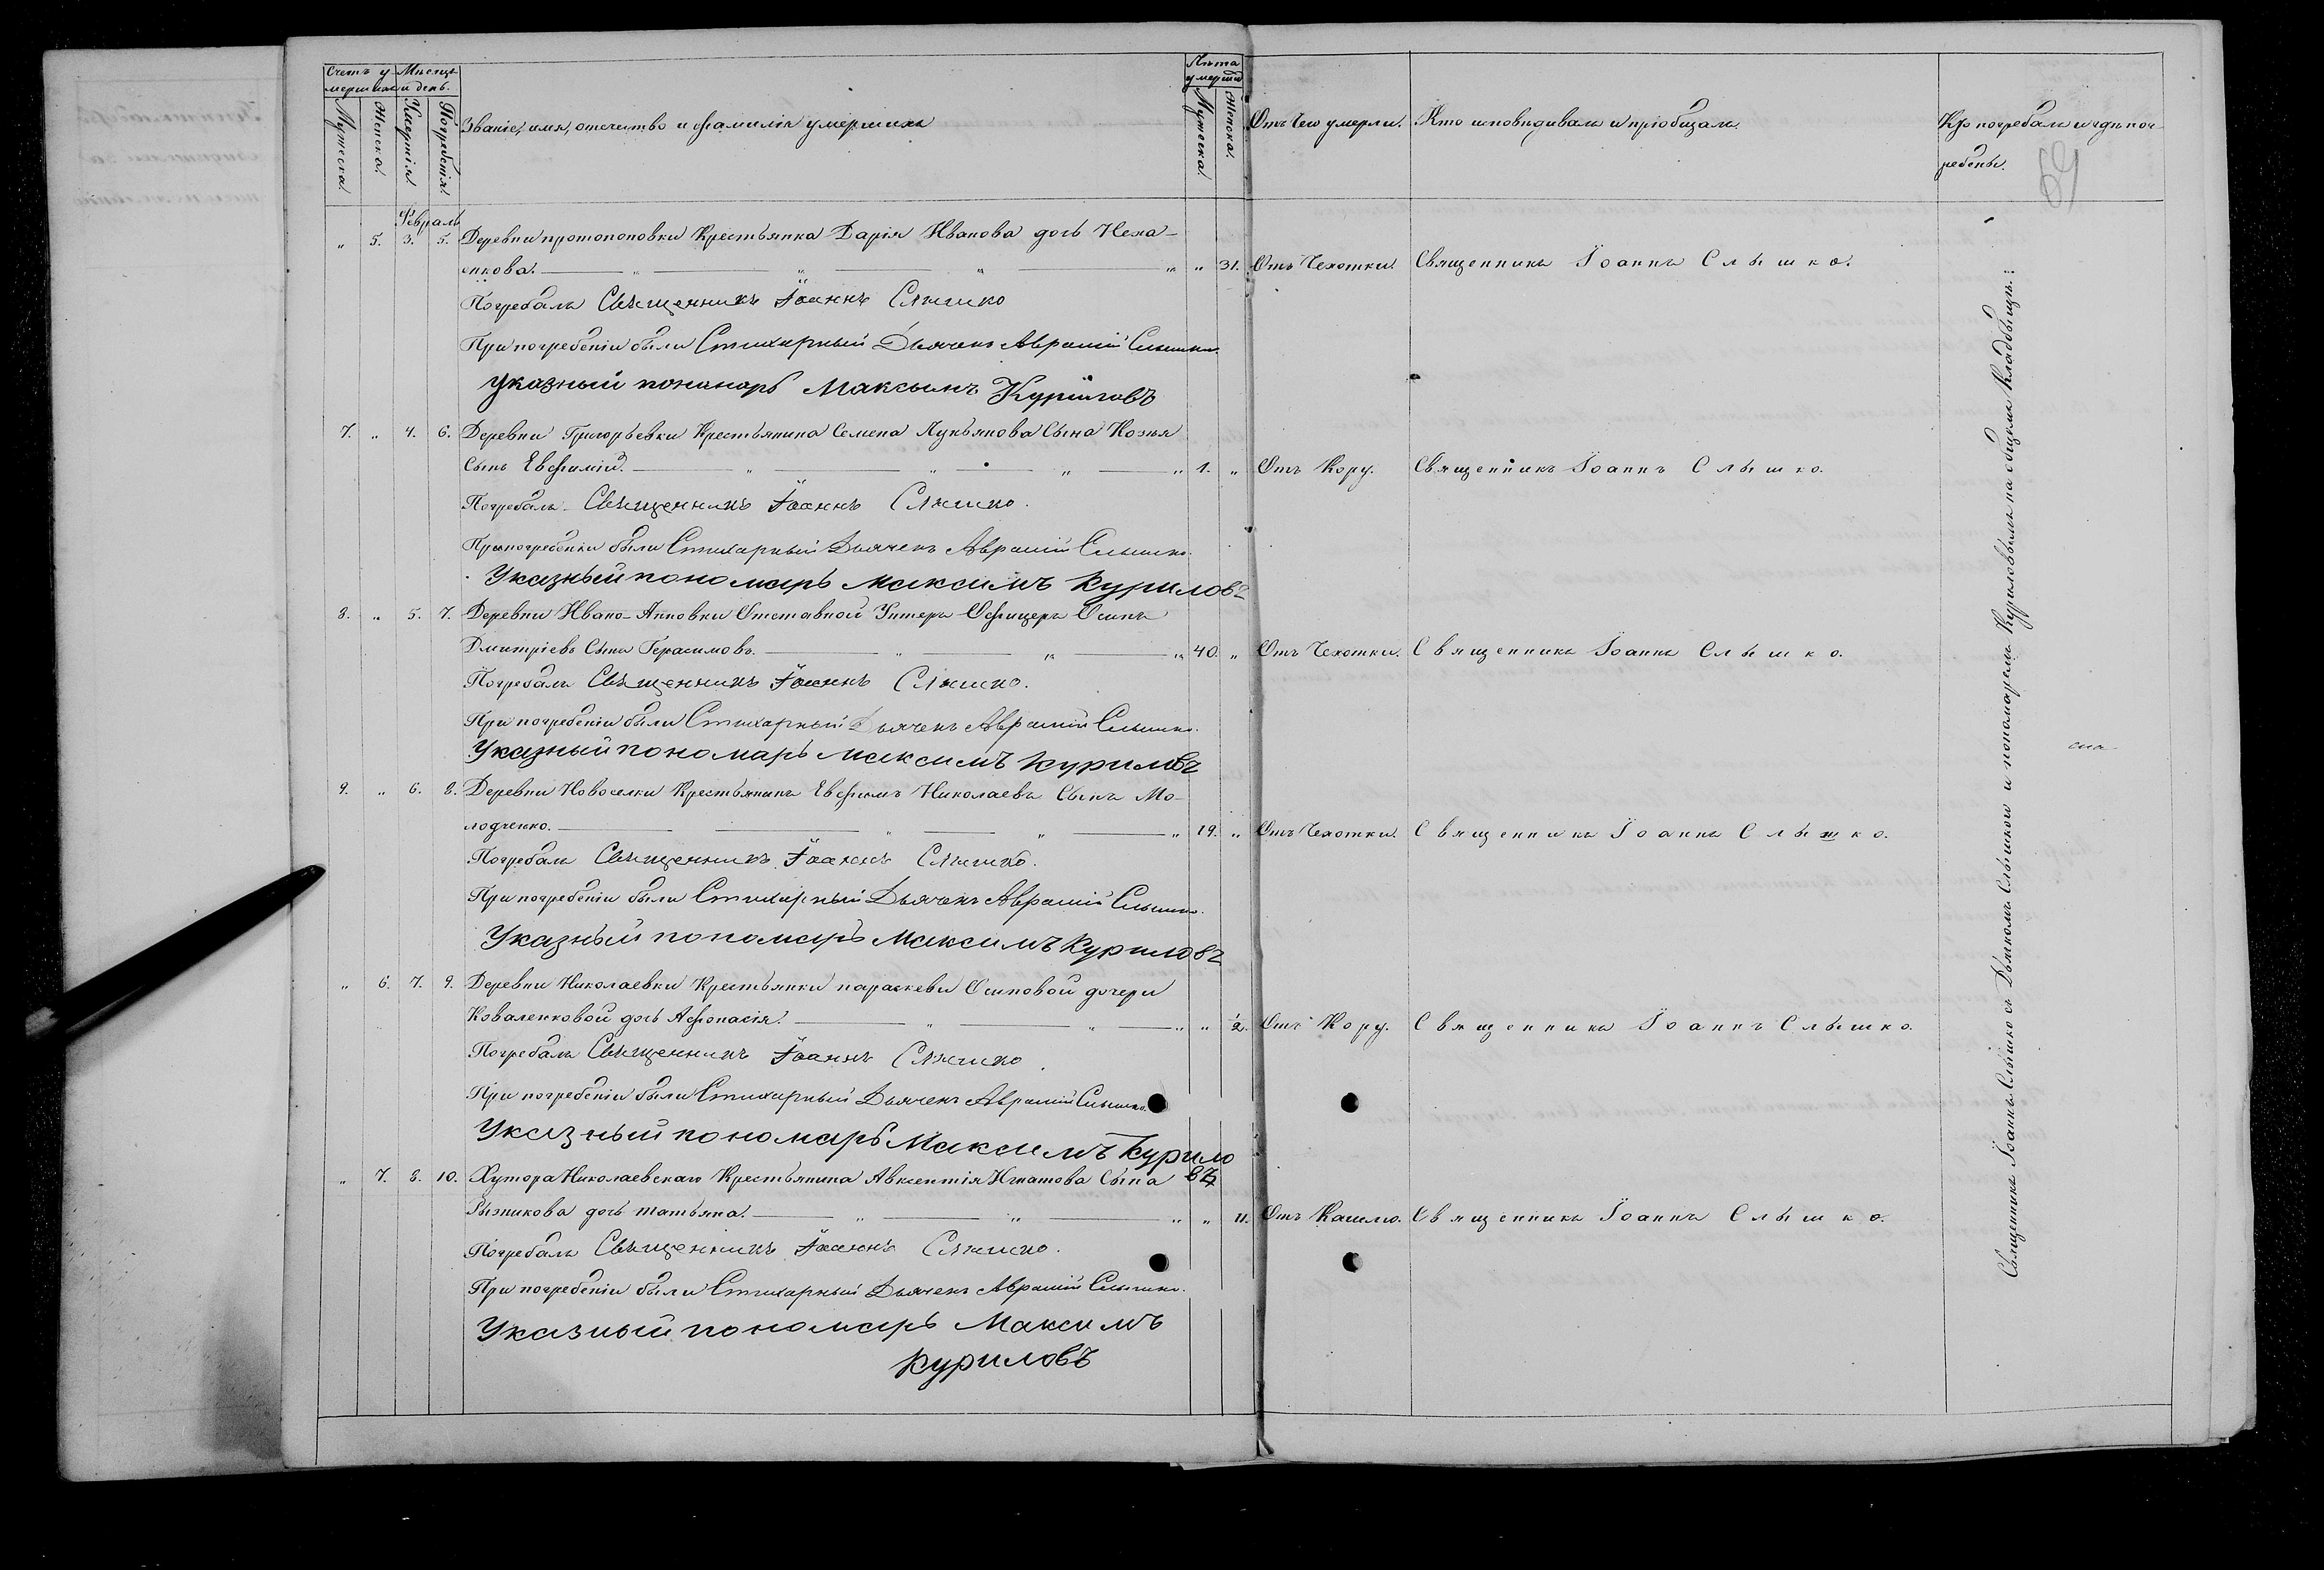 Счетъ у- Мѣсяцъ Лѣта
мершихъ и день. умерши
Мужеска. Женска. Смертія. Погребенія. Званіе, имя, отечество и фамилія умершихъ Мужеска. Женска. Отъ чего умерли. Кто исповѣдивалъ и пріобщалъ. Кто погребалъ и гдѣ пог-
ребены.
59
Февраль
„ 5. 3. 5. Деревни протопоповки Крестьянка Дарія Иванова дочь Неха-
енкова. „ „ „ „ „ 31. Отъ Чехотки. Священникъ Іоаннъ Слышко.
Погребалъ Священникъ Іоаннъ Слышко
При погребеніи были Стихарный Дьячекъ Аврамій Слышко.
указный пономарь Максимъ Куриловъ
7. „ 4. 6. Деревни Григорьевки Крестьянина Семена Лукьянова Сына Козыя
Сынъ Евфимій. „ „ „ „ 1. „ Отъ Кору. Священникъ Іоаннъ Слышко.
Погребалъ Священникъ Іоаннъ Слышко.
При погребеніи были Стихарный Дьячекъ Аврамій Слышко.
Указный пономарь Максимъ Куриловъ
8. „ 5. 7. Деревни Ивано-Анновки Отставной Унтеръ-Офицеръ Осипъ
Дмитріевъ Сынъ Герасимовъ. „ „ „ 40. „ Отъ Чехотки. Священникъ Іоаннъ Слышко.
Погребалъ Священникъ Іоаннъ Слышко.
При погребеніи были Стихарный Дьячекъ Аврамій Слышко.
Указный пономарь Максимъ Куриловъ
9. „ 6. 8. Деревни Новоселки Крестьянинъ Евфимъ Николаевъ Сынъ Мо-
лодченко. „ „ „ 19. „ Отъ Чехотки. Священникъ Іоаннъ Слышко.
Погребалъ Священникъ Іоаннъ Слышко.
При погребеніи были Стихарный Дьячекъ Аврамій Слышко.
Указный пономарь Максимъ Куриловъ
„ 6. 7. 9. Деревни Николаевки Крестьянки параскеви Осиповой дочери
Коваленковой дочь Афонасія. „ „ „ „ ½. Отъ Кору. Священникъ Іоаннъ Слышко.
Погребалъ Священникъ Іоаннъ Слышко.
При погребеніи были Стихарный Дьячекъ Аврамій Слышко.
Указный пономарь Максимъ Курило
въ
„ 7. 8. 10. Хутора Николаевскаго Крестьянина Авксентія Игнатова Сына
Рыжикова дочь татьяна. „ „ „ „ 11. Отъ Кашлю. Священникъ Іоаннъ Слышко.
Погребалъ Священникъ Іоаннъ Слышко.
При погребеніи были Стихарный Дьячекъ Аврамій Слышко.
Указный пономарь Максимъ
Куриловъ
Священникъ Іоаннъ Слышко съ Дьякомъ Слышкою и пономаремъ Куриловымъ на общемъ Кладбищѣ.